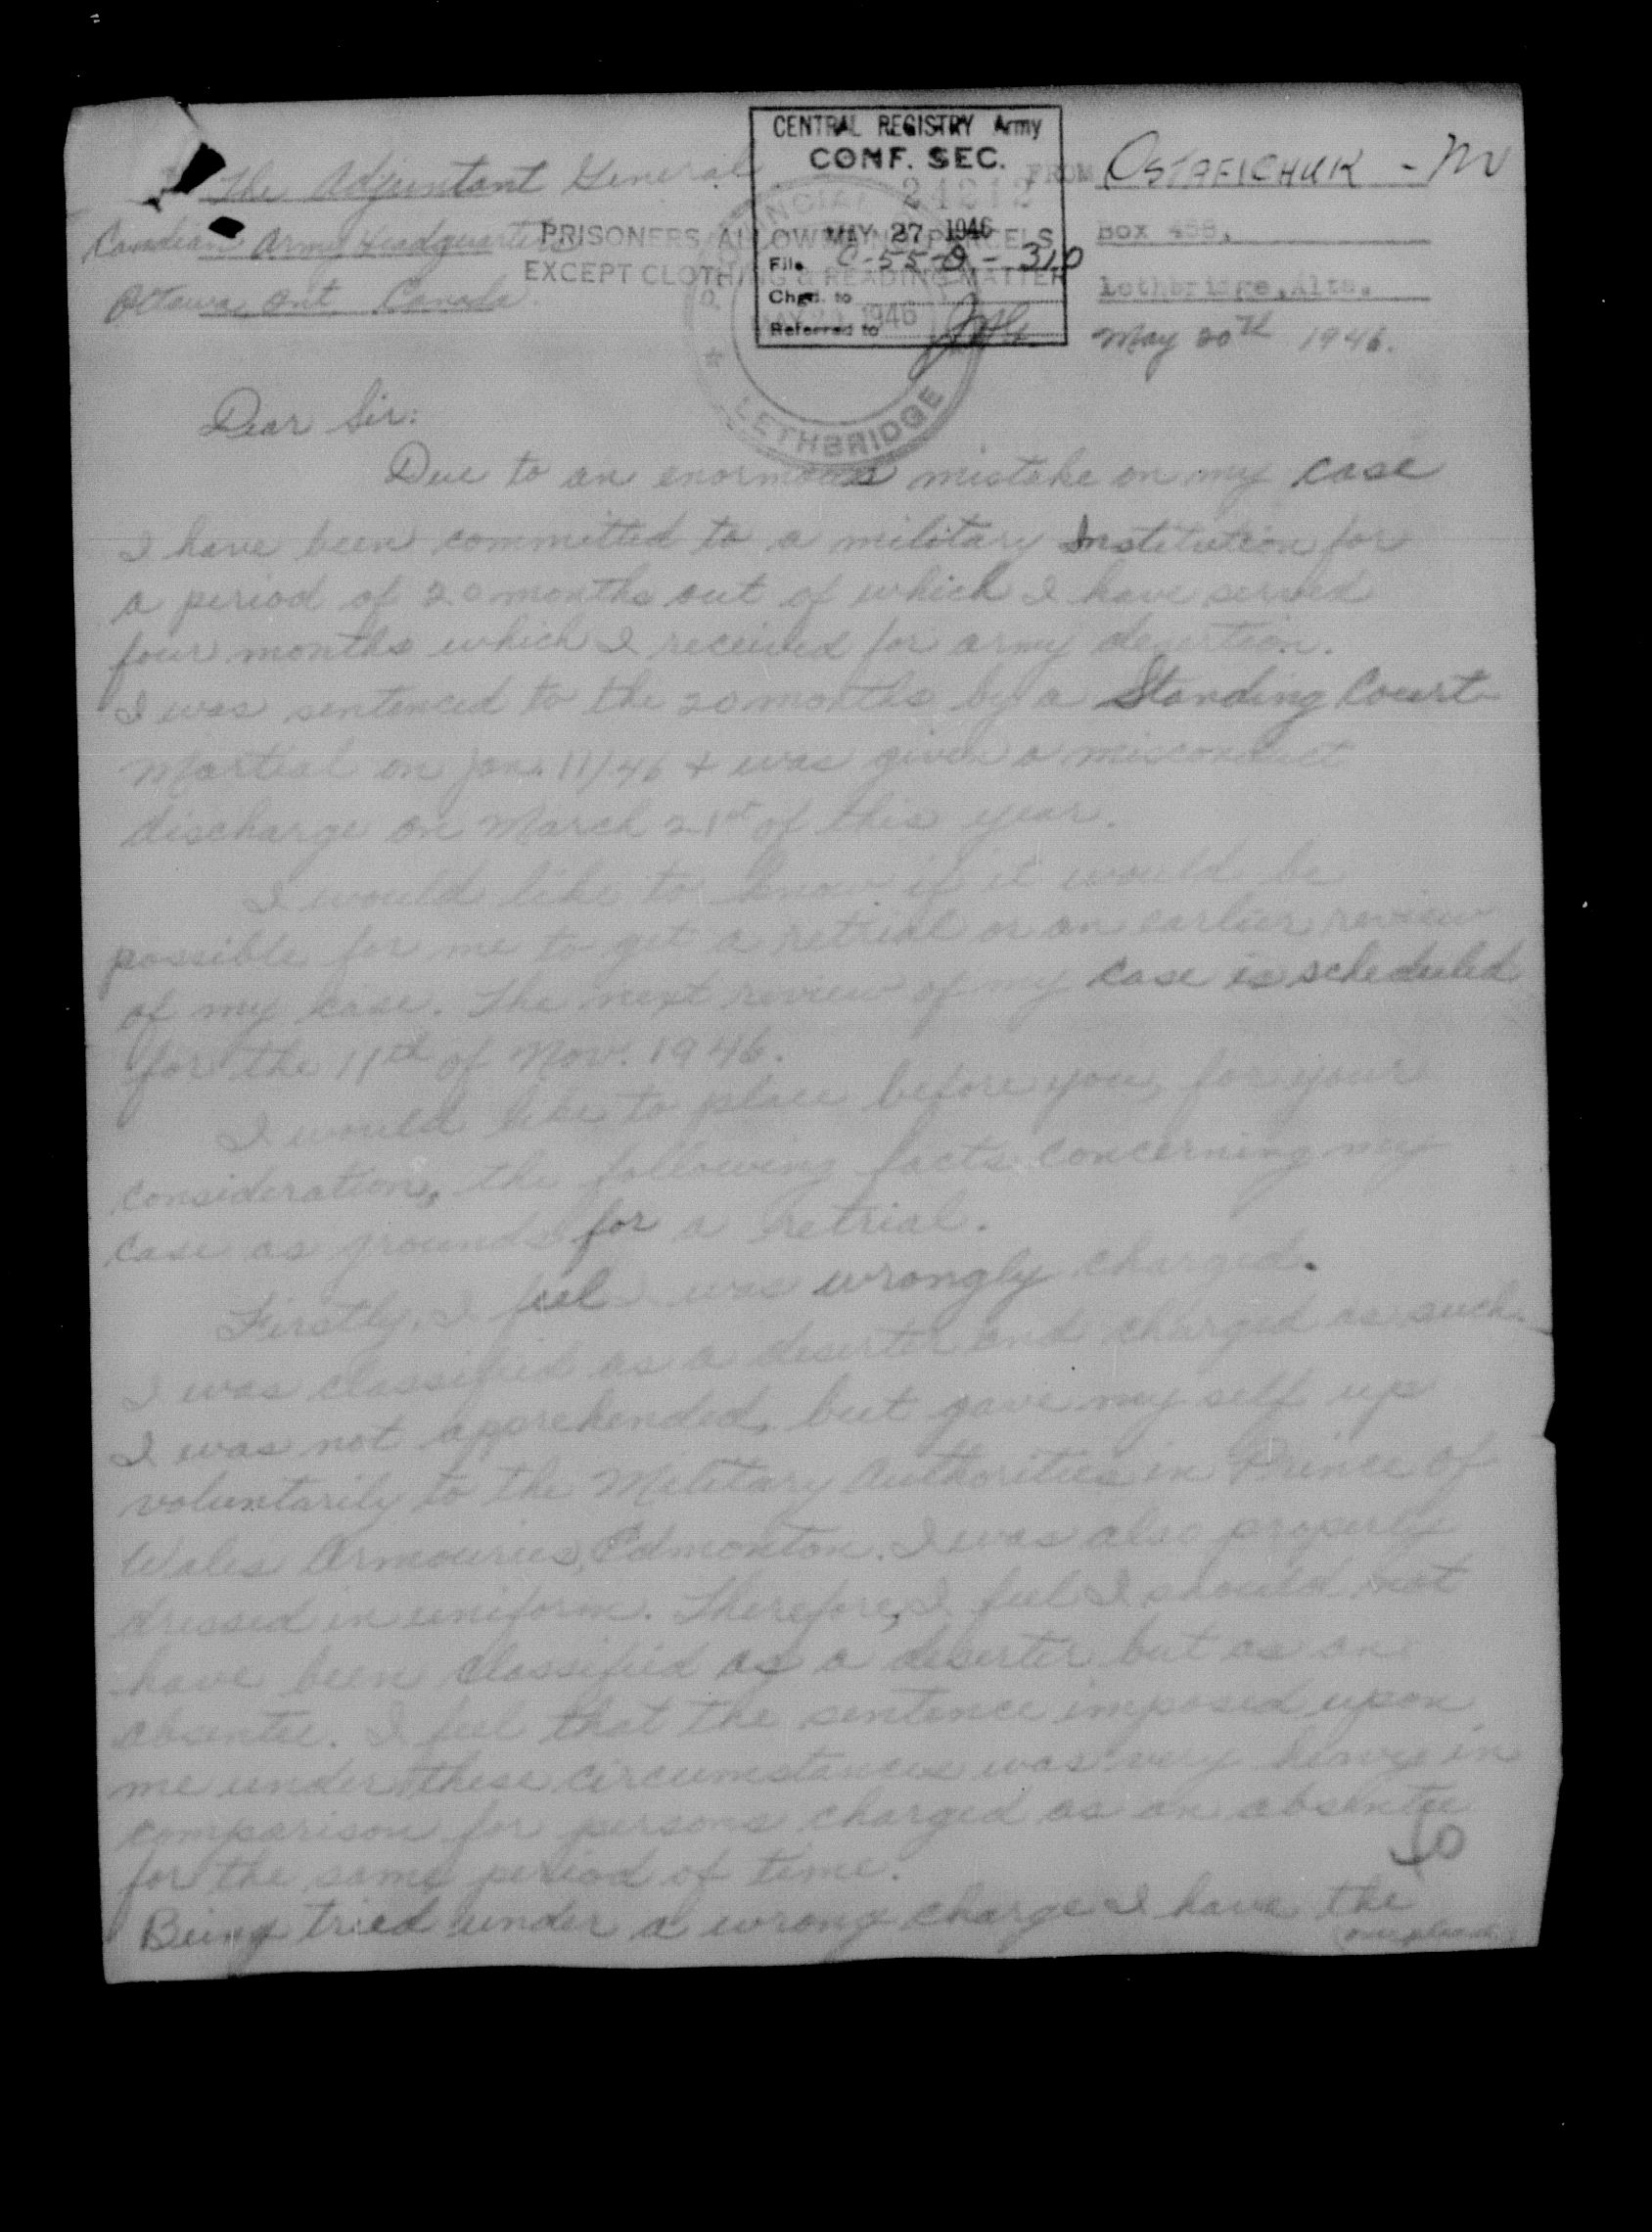 CENTRAL REGISTRY Army
CONF. SEC.
24212
MAY 27 1946
File C-55-O-310
Chgd. to
Referred to
The Adjuntant General
Canadian Army Headquarters
Ottawa, Ont, Canada.
PRISONERS ALLOWED NO PARCELS
EXCEPT CLOTHING & READING MATTER
PROVINCIAL
MAY 20 1946
LETHBRIDGE
FROM OSTAFICHUK - M
Box 458,
Lethbridge, Alta.
May 20th 1946.
Dear Sir:
Due to an enormous mistake on my case
I have been committed to a military Institution for
a period of 20 months out of which I have served
four months which I received for army desertion.
I was sentenced to the 20 months by a Standing Court
Martial on Jan. 11/46 + was given a misconduct
discharge on March 21st of this year.
I would like to know if it would be
possible for me to get a retrial or an earlier review
of my case. The next review of my case is scheduled
for the 11th of Nov. 1946.
I would like to place before you, for your
consideration, the following facts concerning my
case as grounds for a retrial.
Firstly, I feel I was wrongly charged.
I was classified as a deserter and charged as such.
I was not apprehended, but gave my self up
voluntarily to the Military Authorities in Prince of
Wales Armouries, Edmonton. I was also properly
dressed in uniform. Therefore, I feel I should not
have been classified as a deserter but as an
absentee. I feel that the sentence imposed upon
me under these circumstances was very heavy in
comparison for persons charged as an absentee
for the same period of time.
Being tried under a wrong charge I have the